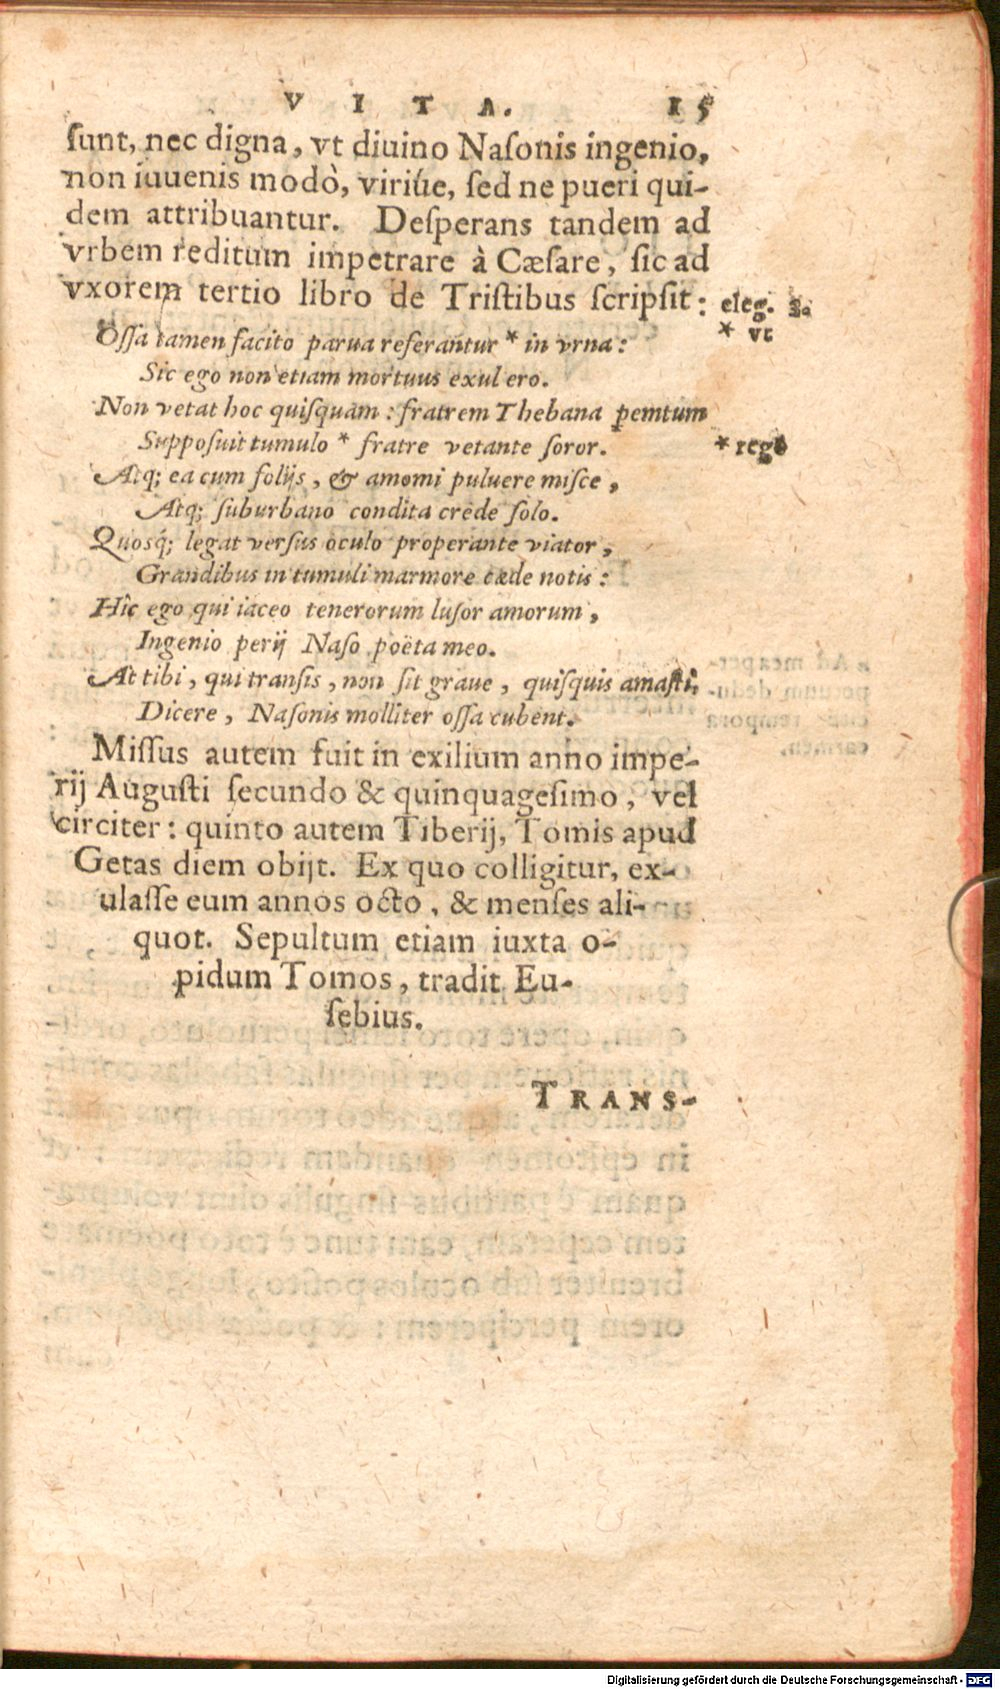 VITA. 15
ſunt, nec digna, vt diuino Naſonis ingenio,
non iuuenis modò, viriúe, ſed ne pueri qui-
dem attribuantur. Deſperans tandem ad
vrbem reditum impetrare à Cæſare, ſic ad
vxorem tertio libro de Triſtibus ſcripſit: eleg. 3.
* vt
Oſſa tamen facito parua referantur * in vrna:
Sic ego non etiam mortuus exul ero.
Non vetat hoc quiſquam: fratrem Thebana pemtum
Suppoſuit tumulo * fratre vetante ſoror. * rege
Atq; ea cum folijs, & amomi puluere miſce,
Atq; ſuburbano condita crede ſolo.
Quosq́; legat verſus oculo properante viator,
Grandibus in tumuli marmore cæde notis:
Hîc ego qui iaceo tenerorum luſor amorum,
Ingenio perij Naſo poëta meo.
At tibi, qui tranſis, non ſit graue, quiſquis amaſti,
Dicere, Naſonis molliter oſſa cubent.
Miſſus autem fuit in exilium anno impe-
rij Auguſti ſecundo & quinquageſimo, vel
circiter: quinto autem Tiberij, Tomis apud
Getas diem obijt. Ex quo colligitur, ex-
ulaſſe eum annos octo, & menſes ali-
quot. Sepultum etiam iuxta o-
pidum Tomos, tradit Eu-
ſebius.
TRANS-
Digitalisierung gefördert durch die Deutsche Forschungsgemeinschaft - DFG